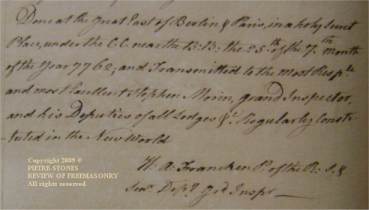 Done at the Great East of Berlin & Paris, in a holy Secret
Place, under the C.C. near the B:B: the 25th of the 7th month
of the Year 7762, and Transmitted to the Most Respble
and most Excellent Stephen Morin, grand Inspector,
and his Deputies of all Lodges &c Regularly Consti-
tuted in the New World
H. A. Francken P. of the R: S. &
Senr Depy Grd Inspr
Copyright 2009 ©
PIETRE-STONES
REVIEW OF FREEMASONRY
All rights reserved